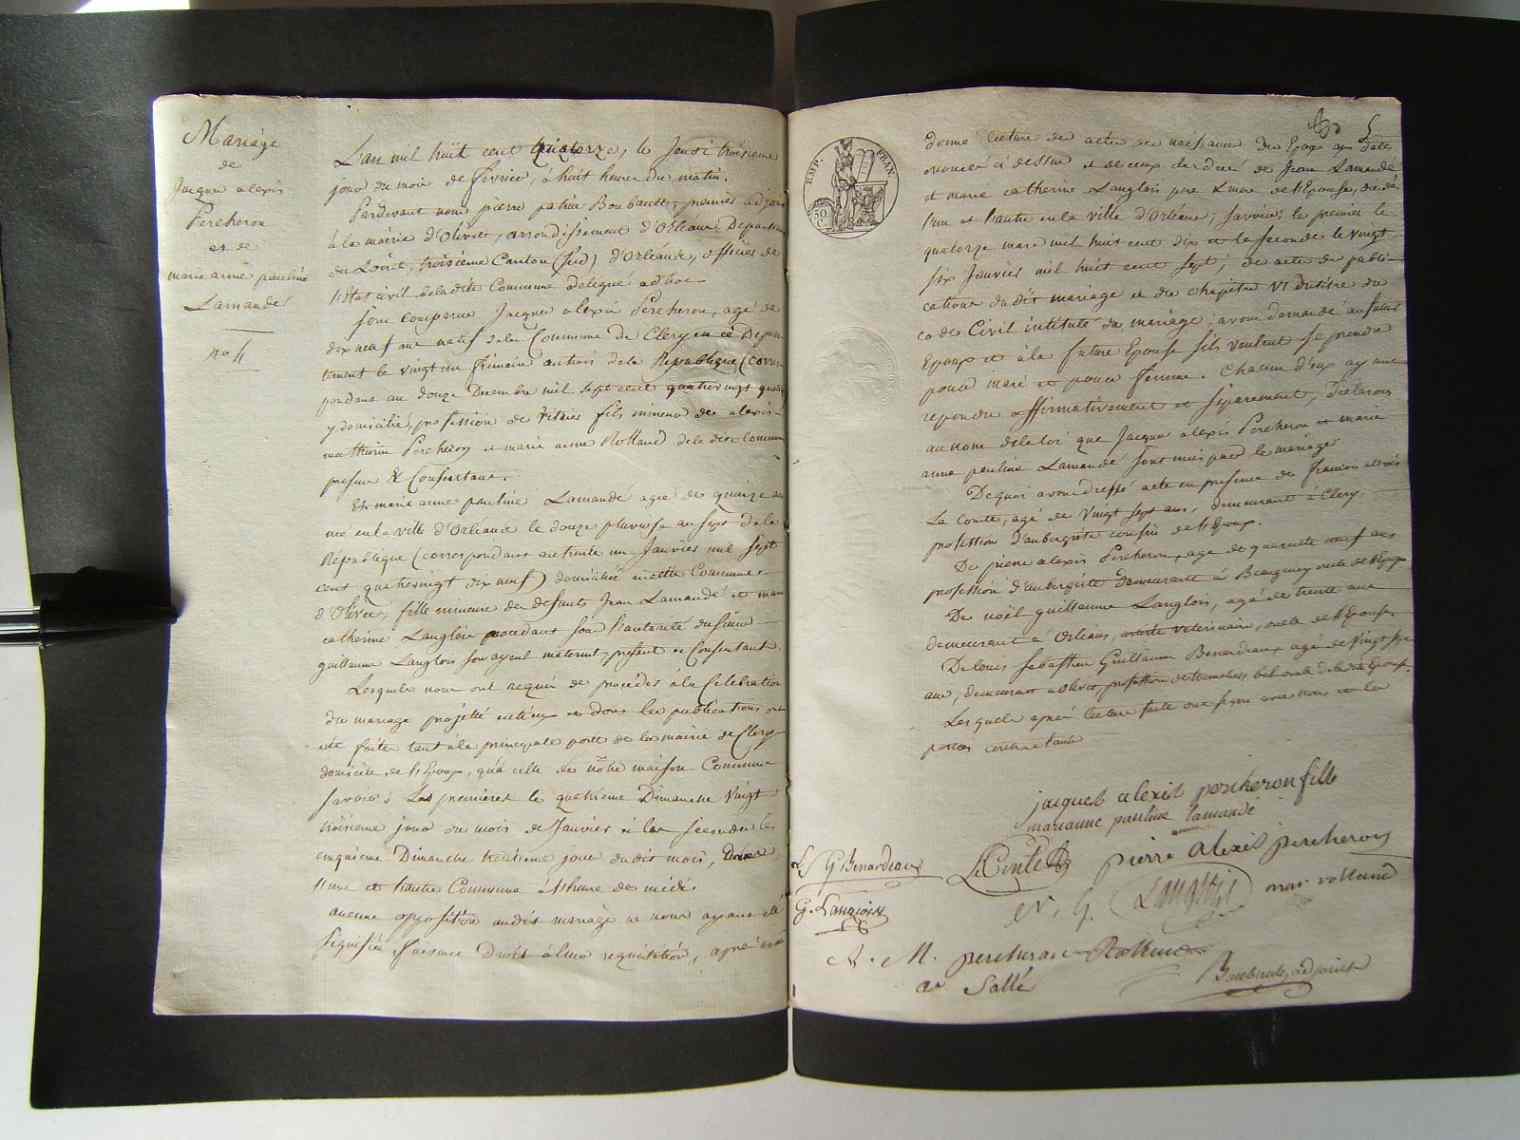 Mariage
de
Jacques alexis
Percheron
et de
marie anne pauline
Lamandé
no 4
L'an mil huit cent quatorze, le Jeudi troisieme
jour du mois de fevrier, à huit heures du matin.
Pardevant nous pierre patrice premier adjoint
à la mairie d'Olivet, arrondissement d'Orléans Departement
du Loiret, troisieme Canton (sud) d'Orléans, officier de
l'état civil de la dite Commune délégué adhoc
Sont comparus Jacques alexis Percheron, agé de
dix neuf ans natif de la Commune de Clery en ce Depar-
tement le vingt un frimaire an trois de la Republique (corres-
pondant au douze Decembre mil sept cent quatrevingt quatorze
y domicilié, profession de fils mineur de alexis
mathurin Percheron et marie anne Rolland de la dite Commune
presens & Consentans.
Et marie anne pauline Lamandé agée de quinze ans
née en la ville d'Orleans le douze pluviose an sept de la
Republique (correspondant au trente un Janvier mil sept
cent quatrevingt dix neuf) domiciliée en cette Commune
d'Olivet, fille mineure des defunts Jean Lamandé et marie
catherine Langlois procedant sous l'autorité du sieur
guillaume Langlois son ayeul maternel, present et Consentant.
Lesquels nous ont requis de proceder à la Celebration
du mariage projetté entr'eux et dont les publications ont
été faites tant à la principale porte de la mairie de Clery
domicile de l'Epoux, qu'à celle de nôtre maison Commune
savoir: Les premieres le quatrieme Dimanche Vingt
troisieme jour du mois de Janvier et les secondes le
cinquieme Dimanche trentieme jour dudit mois,
l'une et l'autre Commune à l'heure de midi
aucune opposition audit mariage ne nous ayant été
signifiée faisant Droit à leur requisition, après avoir
EMP. FRAN.
50
5
donné lecture des actes de naissance des Epoux aux dates
enoncés ci dessus et de ceux du décès de Jean Lamandé
et marie catherine Langlois pere & mere de l'Epouse, décédés
l'un et l'autre en la ville d'Orléans; savoir: le premier le
quatorze mars mil huit cent dix et la seconde le vingt
six Janvier mil huit cent sept; des actes de publi-
cations dudit mariage et du chapitre VI du titre du
code Civil intitulé du mariage; avons demandé au futur
Epoux et à la future Epouse s'ils veulent se prendre
pour mari et pour femme. Chacun d'eux ayant
repondu affirmativement et séparement, Declarons
au nom de la loi que Jacques alexis Percheron et marie
anne pauline Lamandé sont unis par le mariage
De quoi avons dressé acte en presence de francois alexis
Le Comte, agé de Vingt sept ans, demeurant à Clery
profession D'aubergiste cousin de l'Epoux.
De pierre alexis Percheron, agé de quarante neuf ans
profession d'aubergiste demeurant à Beaugency oncle de l'Epoux
De noël guillaume Langlois, agé de trente ans
demeurant à Orléans, artiste veterinaire, oncle de l'Epouse
De Louis Sebastien Guillaume Benardeau, agé de Vingt six
ans, demeurant à Olivet, profession de bel oncle de la dite Epouse.
Lesquels après lecture faite ont signé avec nous et les
parties contractantes
jacques alexis percheron fils
marianne pauline lamandé
L S G Benardeau
Le Comte
pierre alexis percheron
G. Langlois
N. G. Langlois
mar rolland
A. M. percheron Rolland
Sallé
adjoint